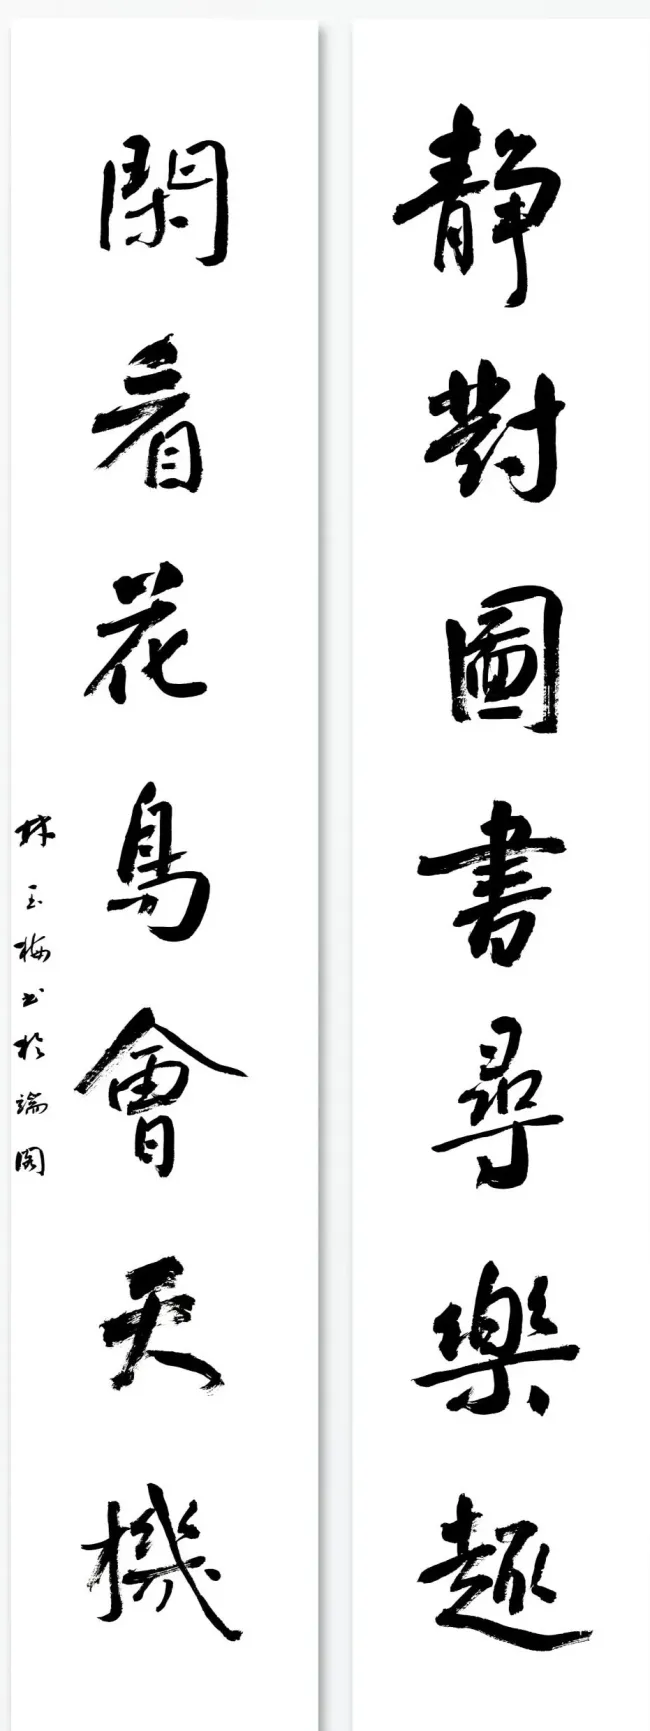 靜對圖書尋樂趣
閑看花鳥會天機
林玉梅書於端閣